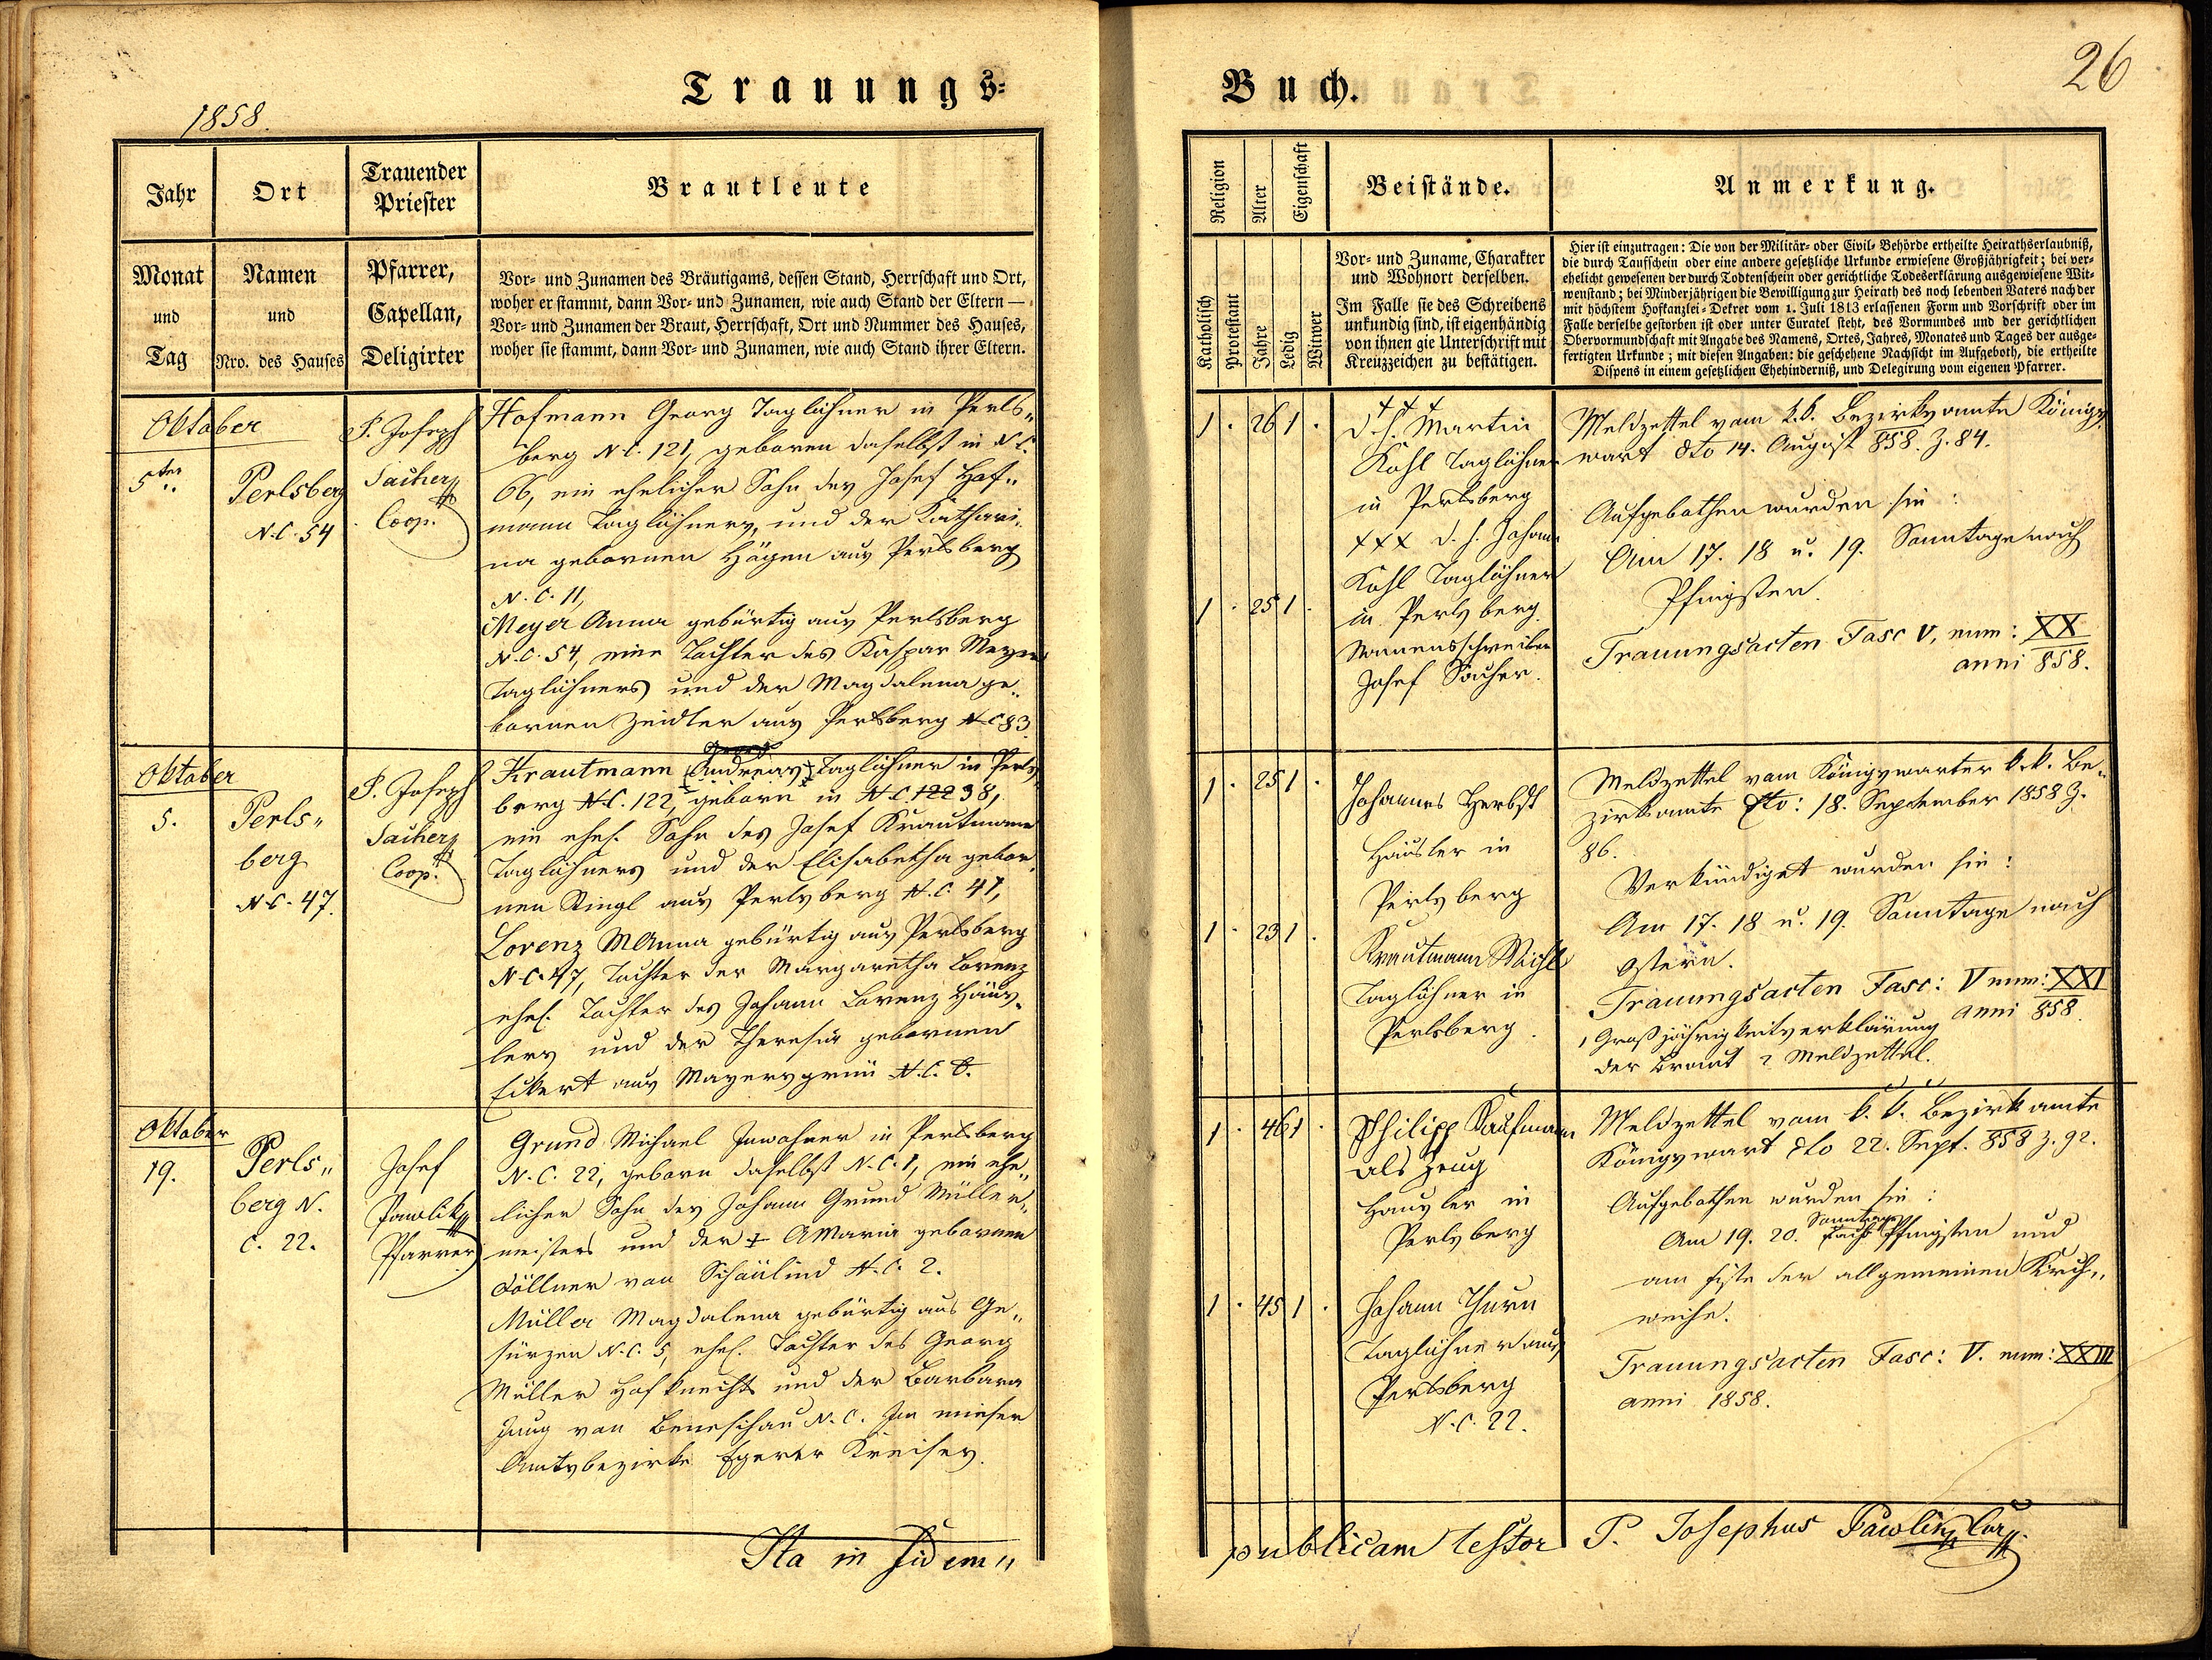 1858.
Trauungs-
Jahr
Ort
Trauender
Priester
Brautleute
Monat
und
Tag
Namen
und
Nro. des Hauses
Pfarrer,
Capellan,
Deligirter
Vor- und Zunamen des Bräutigams, dessen Stand, Herrschaft und Ort,
woher er stammt, dann Vor- und Zunamen, wie auch Stand der Eltern —
Vor- und Zunamen der Braut, Herrschaft, Ort und Nummer des Hauses,
woher sie stammt, dann Vor- und Zunamen, wie auch Stand ihrer Eltern.
Oktober
5ten
Perlsberg
N.C. 54
P. Joseph
Sacher
Coop.
Hofmann Georg Taglöhner in Perls„
berg N.C. 121, geboren daselbst in N.C.
66, ein ehelicher Sohn des Josef Hof„
mann Taglöhners, und der Kathari„
na gebornen Högen aus Perlsberg
N.C. 11,
Meyer Anna gebürtig aus Perlsberg
N.C. 54, eine Tochter des Kaspar Meyer
Taglöhners und der Magdalena ge„
bornen Zeidler aus Perlsberg N.C 83.
Oktober
5.
Perls„
berg
N.C. 47.
P. Joseph
Sacher
Coop.
Georg
Krautmann Andreas Taglöhner in Perls
berg N.C. 122, geborn in N.C. 122 38,
ein ehel. Sohn des Josef Krautmann
Taglöhners und der Elisabetha gebor
nen Ringl aus Perlsberg N.C. 41,
Lorenz MAnna gebürtig aus Perlsberg
N.C. 47, Tochter der Margaretha Lorenz
ehel. Tochter des Johann Lorenz Häus„
lers und der Theresia gebornen
Eckert aus Mayersgrün N.C. 8.
Oktober
19.
Perls„
berg N.
C. 22.
Josef
Pawlik
Pfarrer
Grund Michael Inwohner in Perlsberg
N.C. 22, geborn daselbst N.C. 1, ein ehe„
licher Sohn des Johann Grund Müller„
meisters und der + AMaria gebornen
Föllner von Schanlind N.C. 2.
Müller Magdalena gebürtig aus Ge„
sürzen N.C. 5, ehel. Tochter des Georg
Müller Hofknechts und der Barbara
Jung von Beneschau N.C. Im mieser
Amtsbezirke Egerer Kreises.
Ita in fidem„
Buch.
26
Religion
Alter
Eigenschaft
Beistände.
Anmerkung.
Katholisch
Protestant
Jahre
Ledig
Witwer
Vor- und Zuname, Charakter
und Wohnort derselben.
Im Falle sie des Schreibens
unkundig sind, ist eigenhändig
von ihnen gie Unterschrift mit
Kreuzzeichen zu bestätigen.
Hier ist einzutragen: Die von der Militär- oder Civil- Behörde ertheilte Heirathserlaubniß,
die durch Taufschein oder eine andere gesetzliche Urkunde erwiesene Großjährigkeit; bei ver-
ehelicht gewesenen der durch Todtenschein oder gerichtliche Todeserklärung ausgewiesene Wit-
wenstand; bei Minderjährigen die Bewilligung zur Heirath des noch lebenden Vaters nach der
mit höchstem Hofkanzlei-Dekret vom 1. Juli 1813 erlassenen Form und Vorschrift oder im
Falle derselbe gestorben ist oder unter Curatel steht, des Vormundes und der gerichtlichen
Obervormundschaft mit Angabe des Namens, Ortes, Jahres, Monates und Tages der ausge-
fertigten Urkunde; mit diesen Angaben: die geschehene Nachsicht im Aufgeboth, die ertheilte
Dispens in einem gesetzlichen Ehehinderniß, und Delegirung vom eigenen Pfarrer.
1 · 26 1 ·
+++
d.h. Martin
Kohl Taglöhner
in Perlsberg
xxx d.h. Johann
1 · 25 1 ·
Kohl Taglöhner
in Perlsberg.
Namensschreiber
Josef Sacher.
Meldzettel vom k.k. Bezirksamte Königs
wart dto 14. August 858. Z. 84.
Aufgebothen wurden sie:
Am 17. 18 u. 19. Sonntage nach
Pfingsten.
Trauungsacten Fasc V, num: XX
anni 858.
1 · 25 1 ·
Johannes Herbst
Häusler in
Perlsberg
1 · 23 1 ·
Krautmann Michl
Taglöhner in
Perlsberg.
Meldzettel vom Königswarter k.k. Be„
zirksamte dto: 18. September 1858 Z.
86.
Verkündiget wurden sie:
Am 17. 18 u. 19. Sonntage nach
Ostern.
Trauungsacten Fasc: V num: XXI
anni 858.
1 Großjährigkeitserklärung
der Braut 2 Meldzettel.
1 · 46 1 ·
Philipp Kaufmann
als Zeug
Hausler in
Perlsberg
1 · 45 1 ·
Johann Thurn
Taglöhner aus
Perlsberg
N.C. 22.
Meldzettel vom k.k. Bezirkamte
Königswart dto 22. Sept. 858 Z. 92.
Aufgebothen wurden sie:
Am 19. 20. Sonntage nach Pfingsten und
am Feste der allgemeinen Kirch„
weihe.
Trauungsacten Fasc: V. num: XXIII
anni 1858.
publicam testor P. Josephus Pawlik Cur.